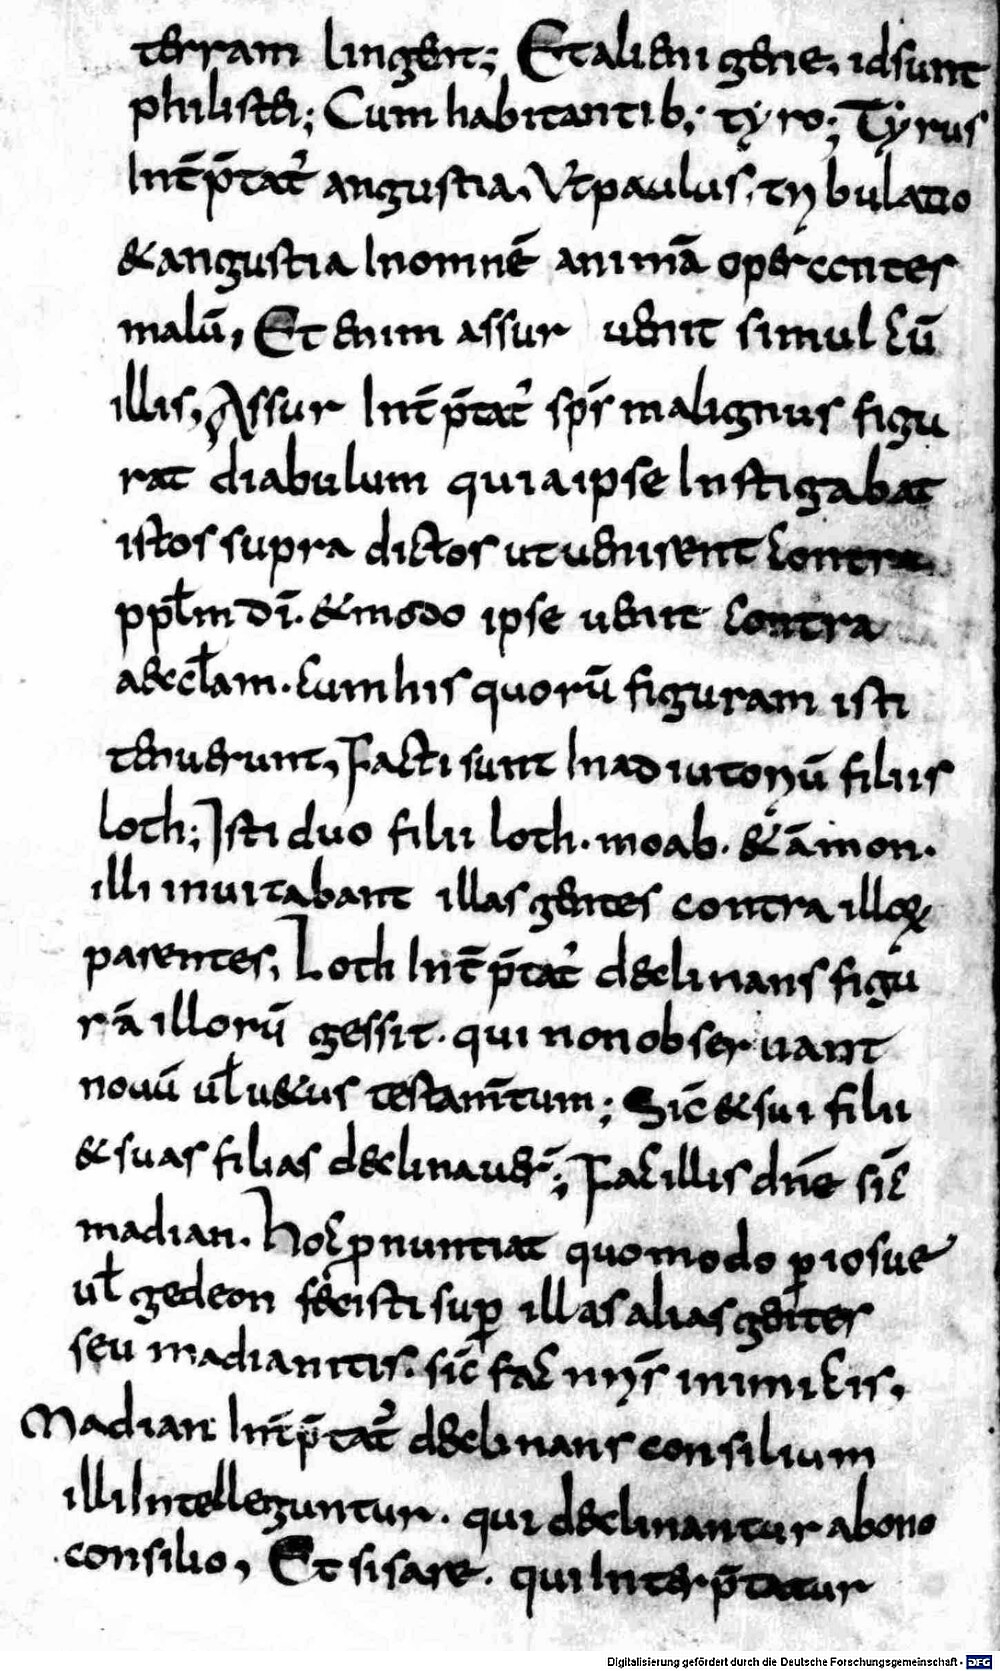 terram lingent; Et alienigene. id sunt
philistei; Cum habitantib; tyro; Tyrus
Int̄p̄tat᷑ angustia, Vt paulus, tribulatio
& angustia In omnē animā operantes
malū, Et enim assur uenit simul cū
illis, Assur Int̄p̄tat᷑ sp̄s malignus figu
rat diabulum quia ipse Instigabat
istos supra dictos ut uenisent contra
ppl̄m dī. & modo ipse uenit contra
aeccl̄am. cum his quorū figuram isti
tenuerunt, Facti sunt In adiutoriū filiis
loth; Isti duo filii loth. moab. & āmon.
illi inuitabant illas gentes contra illoꝝ
parentes, Loth Int̄p̄tat᷑ declinans figu
rā illorū gessit. qui non obseruant
nouū ul̄ uetus testam̄tum; Sic̄ & sui filii
& suas filias declinauer̄; Fac illis dn̄e sic̄
madian. Hoc ꝓnuntiat quomodo ꝑ iosue
ul̄ gedeon fecisti suꝑ illas alias gentes
seu madianitis. sic̄ fac nr̄is inimicis,
Madian Int̄p̄tat᷑ declinans consilium
illi Intelleguntur. qui declinantur a bono
consilio, Et sisare. qui Interp̄tatur
Digitalisierung gefördert durch die Deutsche Forschungsgemeinschaft - DFG